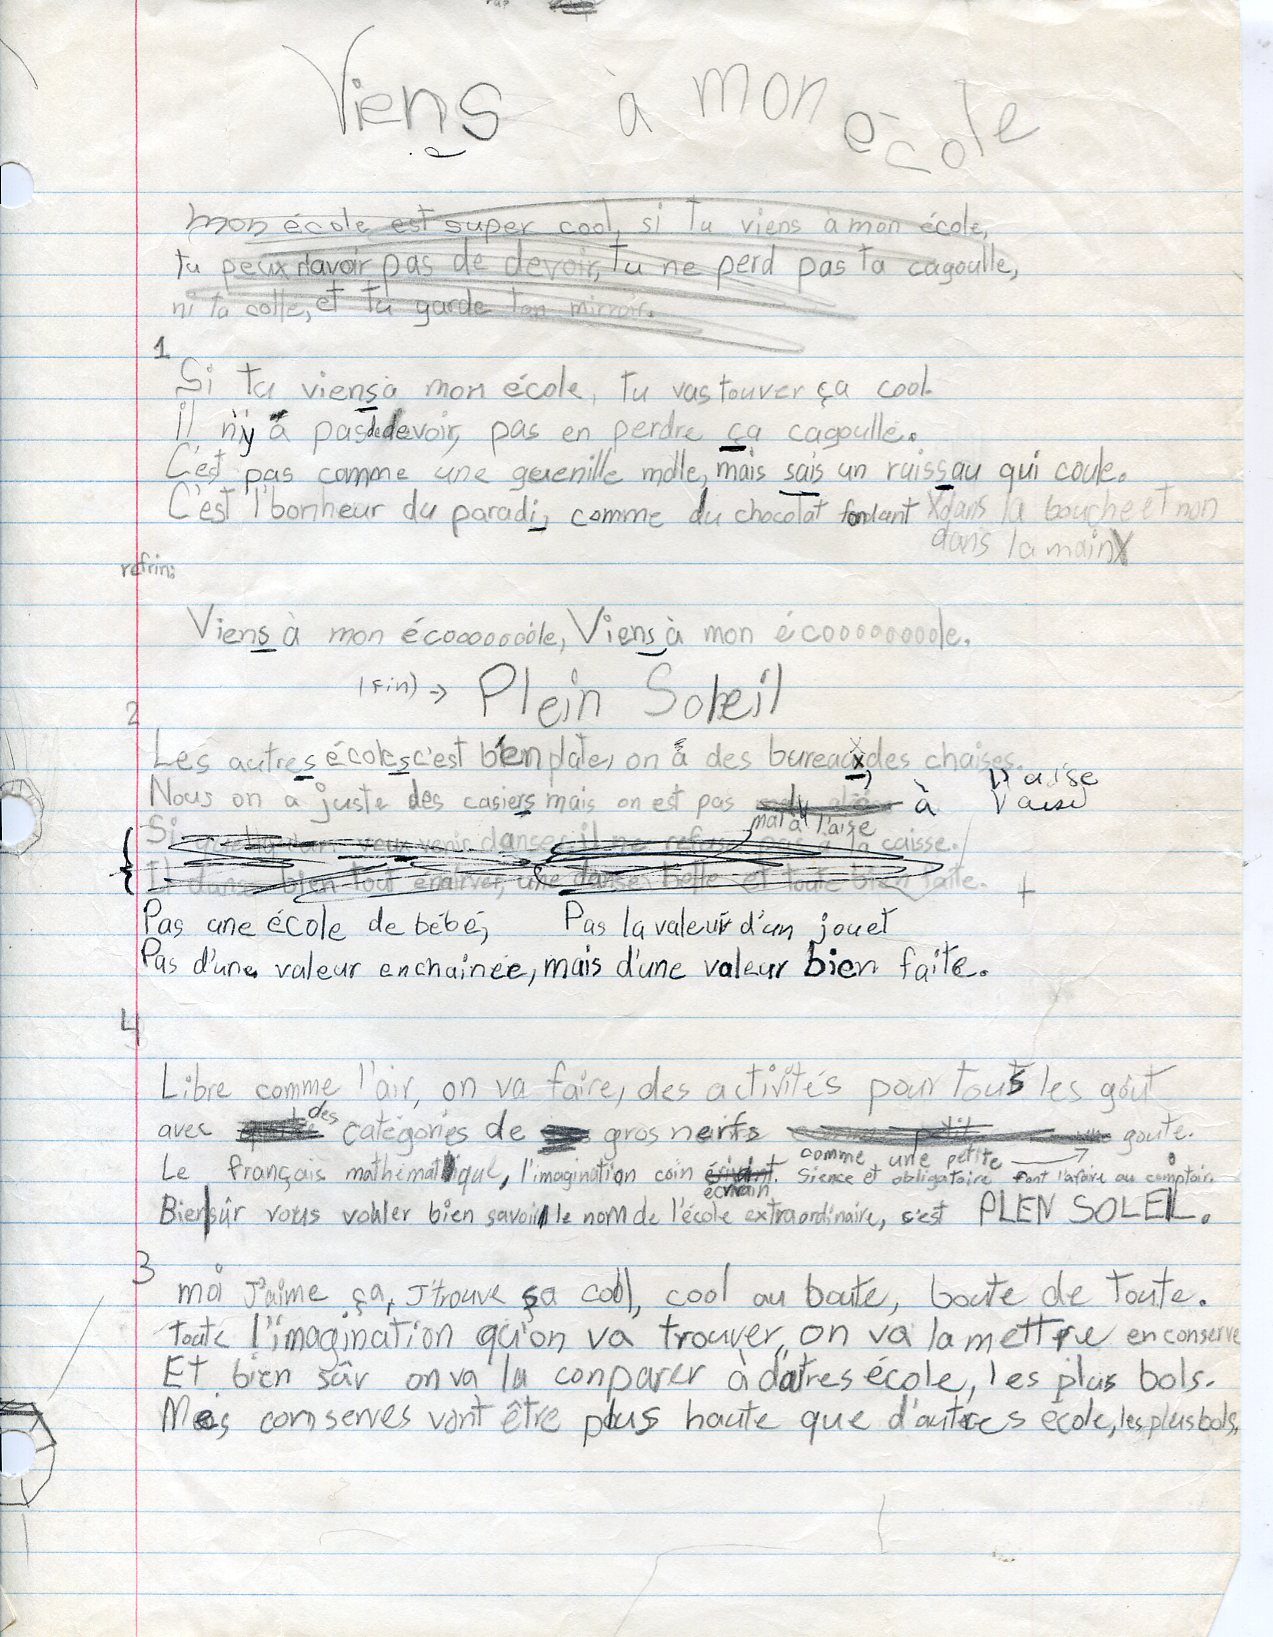 Viens à mon école
mon école est super cool, si tu viens à mon école,
tu peux n'avoir pas de devoir, tu ne perd pas ta cagoulle,
ni ta colle, et tu garde ton mirroir.
1
Si tu viens à mon école, tu vas touver ça cool.
Il n'y a pas de devoir, pas en perdre ça cagoulle.
C'est pas comme une guenille molle, mais sais un ruissau qui coule.
C'est l'bonheur du paradi, comme du chocolat fondant X dans la bouche et non
dans la main X
refrin:
Viens à mon écooooooole, Viens à mon écoooooooole.
(fin) → Plein Soleil
2
Les autres écoles c'est bien plate, on a des bureaux, des chaises.
Nous on a juste des casiers mais on est pas à l'aise
mal à l'aise
l'aise
Si veux venir danser il ne refuse pas à la caisse.
Il danse bien tout énerver, une danse belle et toute bien faite. +
Pas une école de bébé, Pas la valeur d'un jouet
Pas d'une valeur enchainée, mais d'une valeur bien faite.
4
Libre comme l'air, on va faire, des activités pour tous les goût
avec des catégories de gros nerfs goute.
comme une petite
Le français mathématique, l'imagination coin écrivain. Sience et obligatoire font l'afaire au comptoir.
Bien sûr vous vouler bien savoir le nom de l'école extraordinaire, c'est PLEN SOLEIL.
3
moi j'aime ça, J'trouve ça cool, cool au boute, boute de toute.
Toute l'imagination qu'on va trouver, on va la mettre en conserve
Et bien sûr on va la conparer à d'atres école, les plus bols.
Mes conserves vont être plus haute que d'autres école, les plus bols.